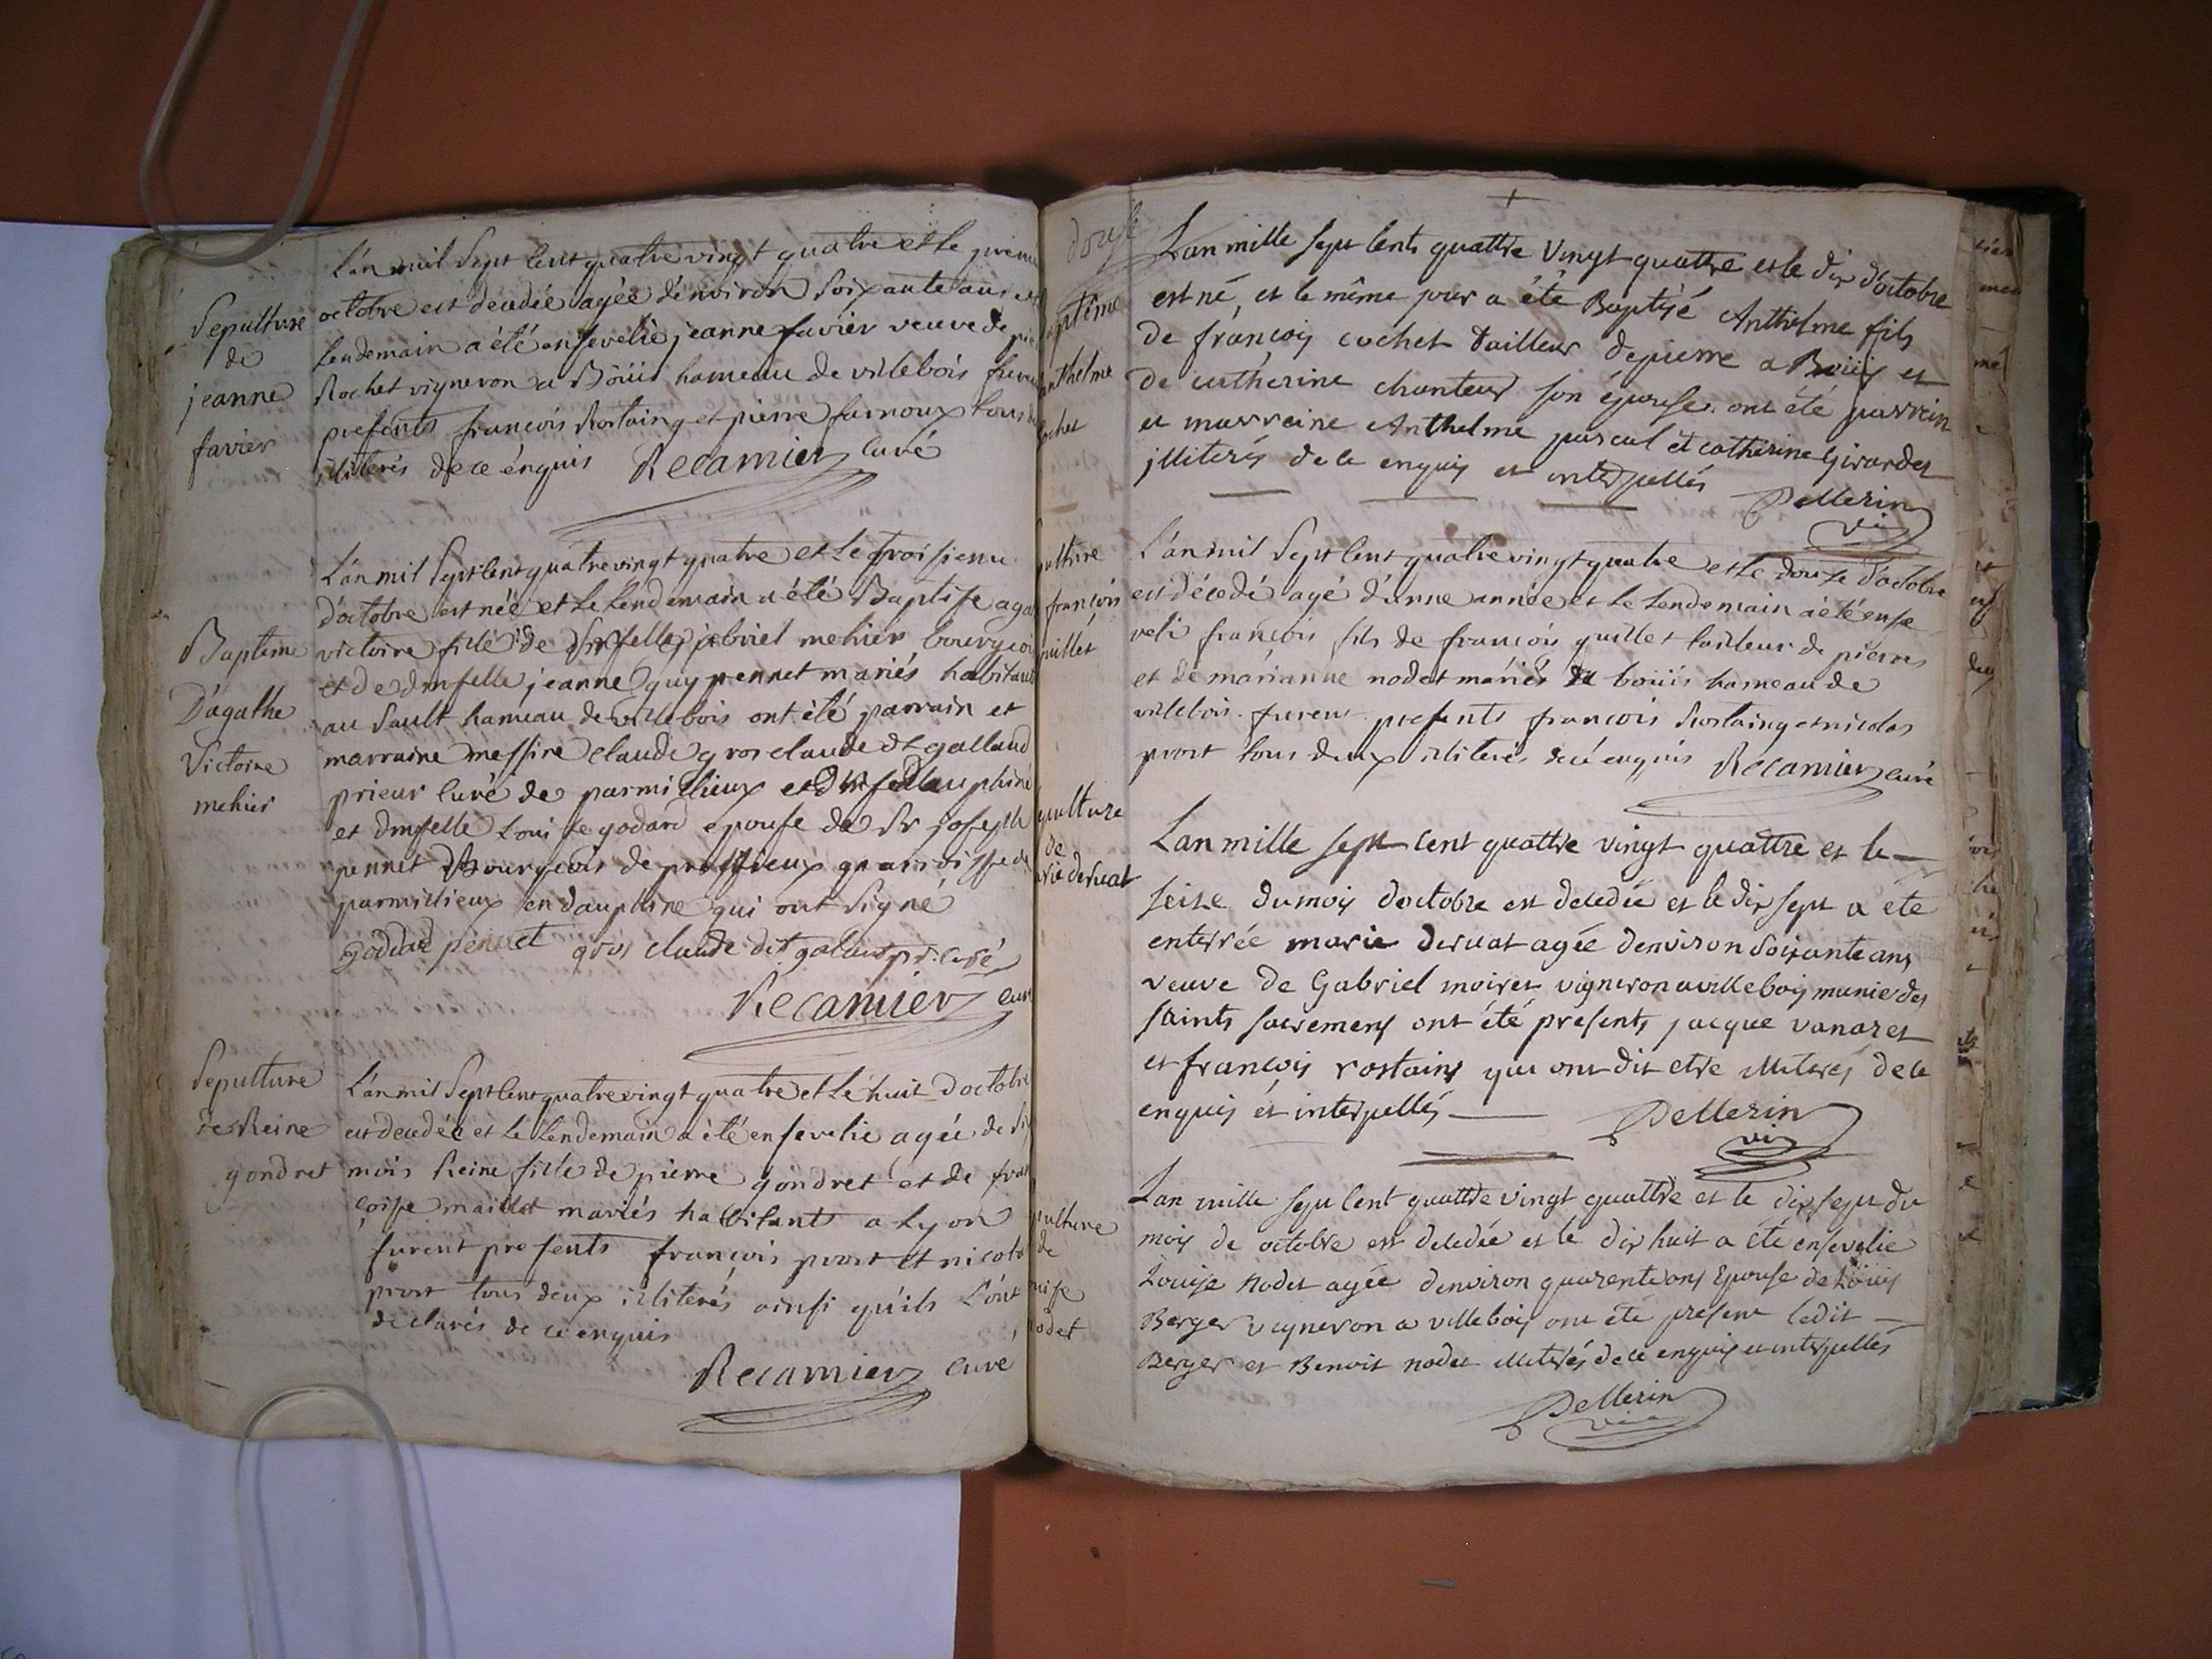 Sepulture
de
jeanne
favier
L'an mil Sept Cent quatre vingt quatre et le premi
octobre est decedée agée d'environ Soixante ans et
lendemain a été ensevelie jeanne favier veuve de
Rochet vigneron a Böüis hameau de villebois furent
presents francois Rostaing et pierre farnoux tous
illiterés de ce énquis Recamier Curé
Bapteme
D'agathe
Victoire
mehier
L'an mil Sept Cent quatre vingt quatre et le troisieme
d'octobre est née et le lendemain a été Baptise aga
victoire fille de jabriel mehier bourgeoi
et de dmselle jeanne guy pennet mariés habitant
au Sault hameau de villebois ont été parrain et
marraine messire claude gros claude dt galland
prieur Curé de parmillieux
et dmselle Louise godard epouse de Sr joseph
pennet Bourgeois de paroisse de
parmillieux en dauphine qui ont Signé
godard pennet gros claude dit galland pr. curé
Recamier cure
Sepulture
de Reine
gondret
L'an mil Sept Cent quatre vingt quatre et le huit d'octobre
est decedée et le lendemain a été ensevelie agée de
mois Reine fille de pierre gondret et de fran
çoise maillet mariés habitants a Lyon
furent presents françois prost et nicola
prost tous deux illiterés ainsi qu'ils L'ont
declarés de ce enquis
Recamier Cure
douse
ptême
anthelme
ochet
Lan mille sept Cents quattre Vingt quattre et le dix d'octobre
est né, et le même jour a été Baptisé Anthelme fils
de françois cochet tailleur de pierre a Boüis et
de catherine chanteur son épouse. ont été parrein
et marreine Anthelme pascal et catherine Girardet
jlliterés de ce enquis et interpellés
Pellerin
vic
pulture
françois
uillet
L'an mil Sept Cent quatre vingt quatre et le douze d'octobre
est décedé agé d'unne année et le lendemain a été ense
veli françois fils de françois guillet tailleur de pierres
et de marianne nodet mariés a boüis hameau de
villebois. furent presents francois Rostaing et nicolas
prost tous deux illiterés de cé enquis Recamier curé
pulture
de
rie deruat
Lan mille sept cent quattre vingt quattre et le
seize du mois doctobre est decedée et le dix sept a été
enterrée marie deruat agée denviron Soixante ans
veuve de Gabriel moiret vigneron a villebois munie des
saints sacremens ont été presents jacque vanaret
et françois rostaing qui ont dit etre illiterés de ce
enquis et interpellés Pellerin
vic
pulture
de
uise
nodet
Lan mille sept cent quattre vingt quattre et le dix sept du
mois de octobre est decedée et le dix huit a été ensevelie
Louise nodet agée denviron quarente ans Epouse de Loüis
Berger vigneron a villebois ont été present ledit
Berger et Benoit nodet illiterés de ce enquis et interpellés
Pellerin
vic